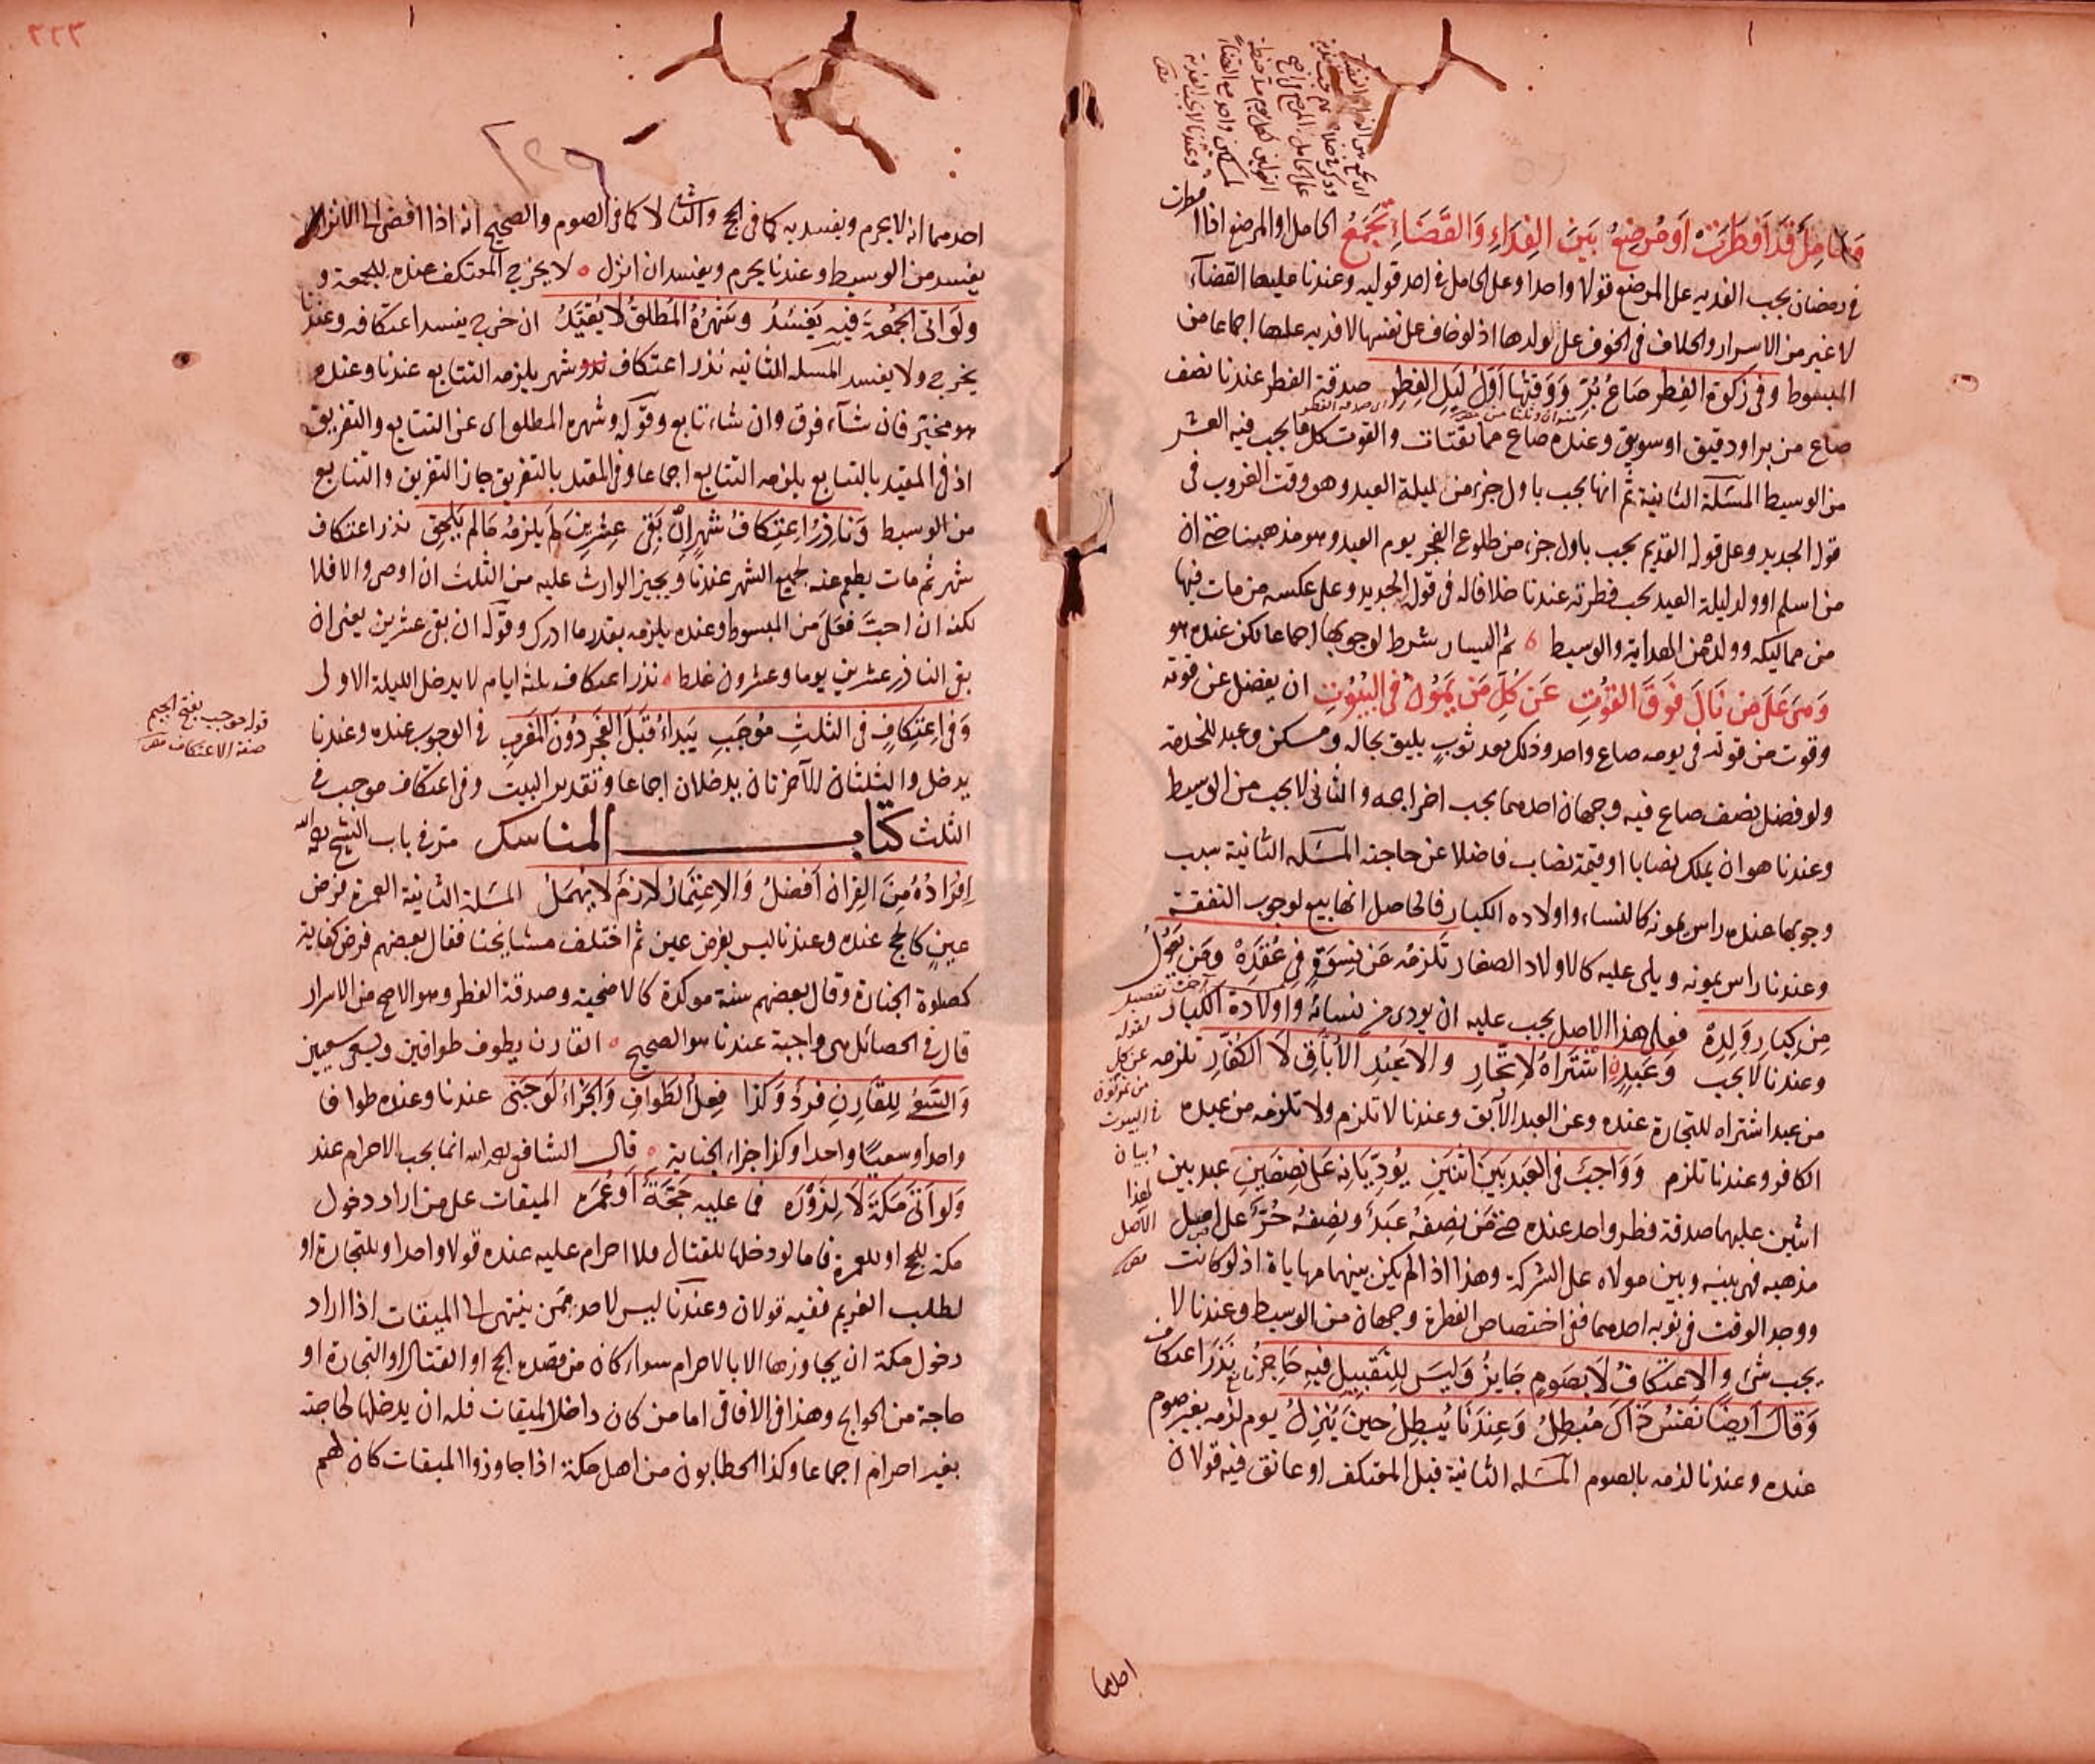 وحامل قد افطرت او مرضع بين الفداء والقضاء تجمع الحامل او المرضع اذا افطرت
في رمضان يجب الفديه على المرضع قولا واحدا وعلى الحامل في احد قوليه وعندنا عليهما القضاء
لا غير من الاسرار والخلاف في الخوف على ولدها اذ لو خاف على نفسها لا فديه عليها اجماعا من
المبسوط وفى زكوة الفطر صاع بر ووقتها اول ليل الفطر صدقة الفطر عندنا نصف
صاع من بر او دقيق او سويق وعنده صاع مما يقتات والقوت كل ما يجب فيه العشر
من الوسيط المسئلة الثانية ثم انها يجب باول جزء من ليلة العيد وهو وقت الغروب فى
قوله الجديد وعلى قوله القديم يجب باول جزء من طلوع الفجر يوم العيد وهو مذهبنا حتى ان
من اسلم او ولد ليلة العيد يجب فطرته عندنا خلافا له فى قوله الجديد وعلى عكسه من مات فيها
من مماليكه وولده من الهداية والوسيط ثم اليسار شرط لوجوبها اجماعا لكن عنده هو
ومن على من نال فوق القوت عن كل من يمون فى البيوت ان يفضل عن قوته
وقوت من قوته فى يومه صاع واحد وذلك بعد ثوب يليق بحاله ومسكن وعبد للخدمة
ولو فضل نصف صاع فيه وجهان احدهما يجب اخراجه والثانى لا يجب من الوسيط
وعندنا هو ان يملك نصابا او قيمة نصاب فاضلا عن حاجته المسئله الثانية سبب
وجوبها عنده راس يمونه كالنساء واولاده الكبار فالحاصل انها يتبع لوجوب النفقة
وعندنا راس يمونه ويلى عليه كالاولاد الصغار تلزمه عن نسوة في عقده ومن يعول
من كبار ولده فعلى هذا الاصل يجب عليه ان يودى عن نسائه واولاده الكبار
وعندنا لا يجب وعبده اشتراه لاتجار والاعبد الاباق لا الكفار تلزمه
من عبد اشتراه للتجارة عنده وعن العبد الآبق وعندنا لا تلزم ولا تلزمه من عبده
الكافر وعندنا تلزم وواجب فى العبد بين اثنين يؤديانه على نصفين عبد بين
اثنين عليهما صدقة فطر واحد عنده حتى من نصفه عبد ونصفه حر على اصل
مذهبه فهى بينه وبين مولاه على الشركة وهذا اذا لم يكن بينهما مهاياة اذ لو كانت
ووجد الوقت فى نوبه احدهما ففى اختصاص الفطرة وجهان من الوسيط وعندنا لا
يجب شئ والاعتكاف لا بصوم جايز وليس للتقبيل فيه حاجز نذر اعتكاف
وقال ايضا نفس ذاك مبطل وعندنا يبطل حين ينزل يوم لزمه بغير صوم
عنده وعندنا لزمه بالصوم المسئله الثانية قبل المعتكف او عانق فيه قولان
احدهما
احدهما انه لا يحرم ويفسد به كما فى الحج والثانى لا كما فى الصوم والصحيح انه اذا افضى الى الانزال
يفسد من الوسيط وعندنا يحرم ويفسد ان انزل لا يخرج المعتكف عنده للجمعة و
ولو اتى الجمعة فيه يفسد وشهره المطلق لا يقيد ان خرج يفسد اعتكافه وعندنا
يخرج ولا يفسد المسله الثانيه نذر اعتكاف شهر يلزمه التتابع عندنا وعنده
هو مخير فان شاء فرق وان شاء تابع وقوله وشهره المطلق اى عن التتابع والتفريق
اذ فى المقيد بالتتابع يلزمه التتابع اجماعا وفى المقيد بالتفريق جاز التفريق والتتابع
من الوسيط وناذر اعتكاف شهر ان بقى عشرين لم يلزمه ما لم يلحق نذر اعتكاف
شهر ثم مات يطعم عنه لجميع الشهر عندنا ويجبر الوارث عليه من الثلث ان اوصى والا فلا
لكنه ان احب فعل من المبسوط وعنده يلزمه بقدر ما ادرك وقوله ان بقى عشرين يعنى ان
بقى الناذر عشرين يوما وعشرون غلط نذر اعتكاف ثلثة ايام لا يدخل الليلة الاولى
وفى اعتكاف فى الثلث موجب يبداء قبل الفجر دون المغرب فى الوجوب عنده وعندنا
يدخل والليلتان الآخرتان يدخلان اجماعا وتقدير البيت وفى اعتكاف موجب فى
الثلث كتاب المناسك مر في باب الشيخ رحمه الله
افراده من القران افضل والاعتمار لازم لا يهمل المسئلة الثانية العمرة فرض
عين كالحج عنده وعندنا ليس بفرض عين ثم اختلف مشايخنا فقال بعضهم فرض كفاية
كصلوة الجنازة وقال بعضهم سنة موكدة كالاضحية وصدقة الفطر وهو الاصح من الاسرار
قال فى الحصائل هى واجبة عندنا هو الصحيح القارن يطوف طوافين ويسعى سعيين
والسعى للقارن فرد وكذا فعل الطواف والجزاء لو جنى عندنا وعنده طوافا
واحدا وسعيا واحدا وكذا جزاء الجناية قال الشافعى رحمه الله انما يجب الاحرام عند
ولو اتى مكة لا لزوره فما عليه حجة او عمره الميقات على من اراد دخول
مكة للحج او للعمرة فاما لو دخلها للقتال فلا احرام عليه عنده قولا واحدا وللتجارة او
لطلب الغريم ففيه قولان وعندنا ليس لاحد ممن ينتهى الى الميقات اذا اراد
دخول مكة ان يجاوزها الا بالاحرام سواء كان من قصده الحج او القتال او التجارة او
حاجة من الحوايج وهذا فى الافاقى اما من كان داخل الميقات فله ان يدخلها لحاجته
بغير احرام اجماعا وكذا الحطابون من اهل مكة اذا جاوزوا الميقات كان لهم
قوله موجب بفتح الجيم
صفة الاعتكاف
٢٢٣